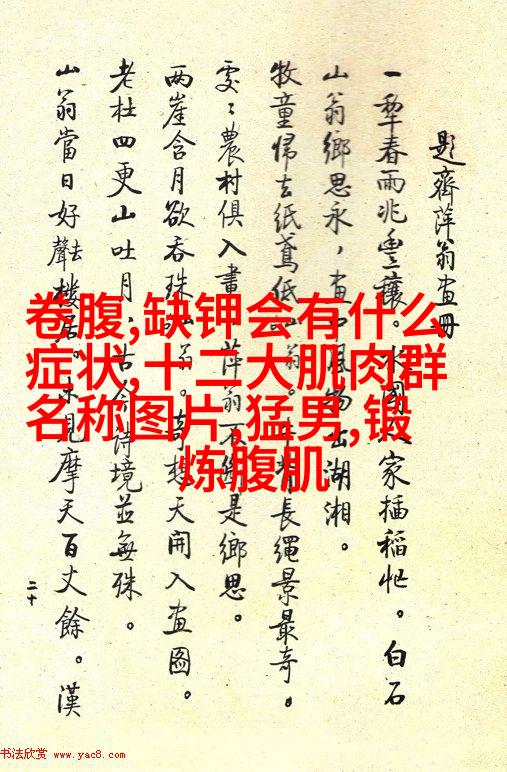 題齊萍翁畫冊
一犁春雨兆豐穰。水國人家插稻忙。白石
山翁鄉思永，畫風物出湖湘。
牧童歸去紙鳶低翁。牛背長繩景最奇。
處々農村俱入畫萍翁不是鄉思。
两崖含月欲吞珠翁。奇想天開入畫圖。
老杜四更山吐月，古今詩境並無殊。
山翁當日好聲去樓居。不見摩天百丈餘。漢
二十
卷腹,缺钾会有什么
症状,十二大肌肉群
名称图片,猛男,锻
炼腹肌
书法欣赏 www.yac8.com